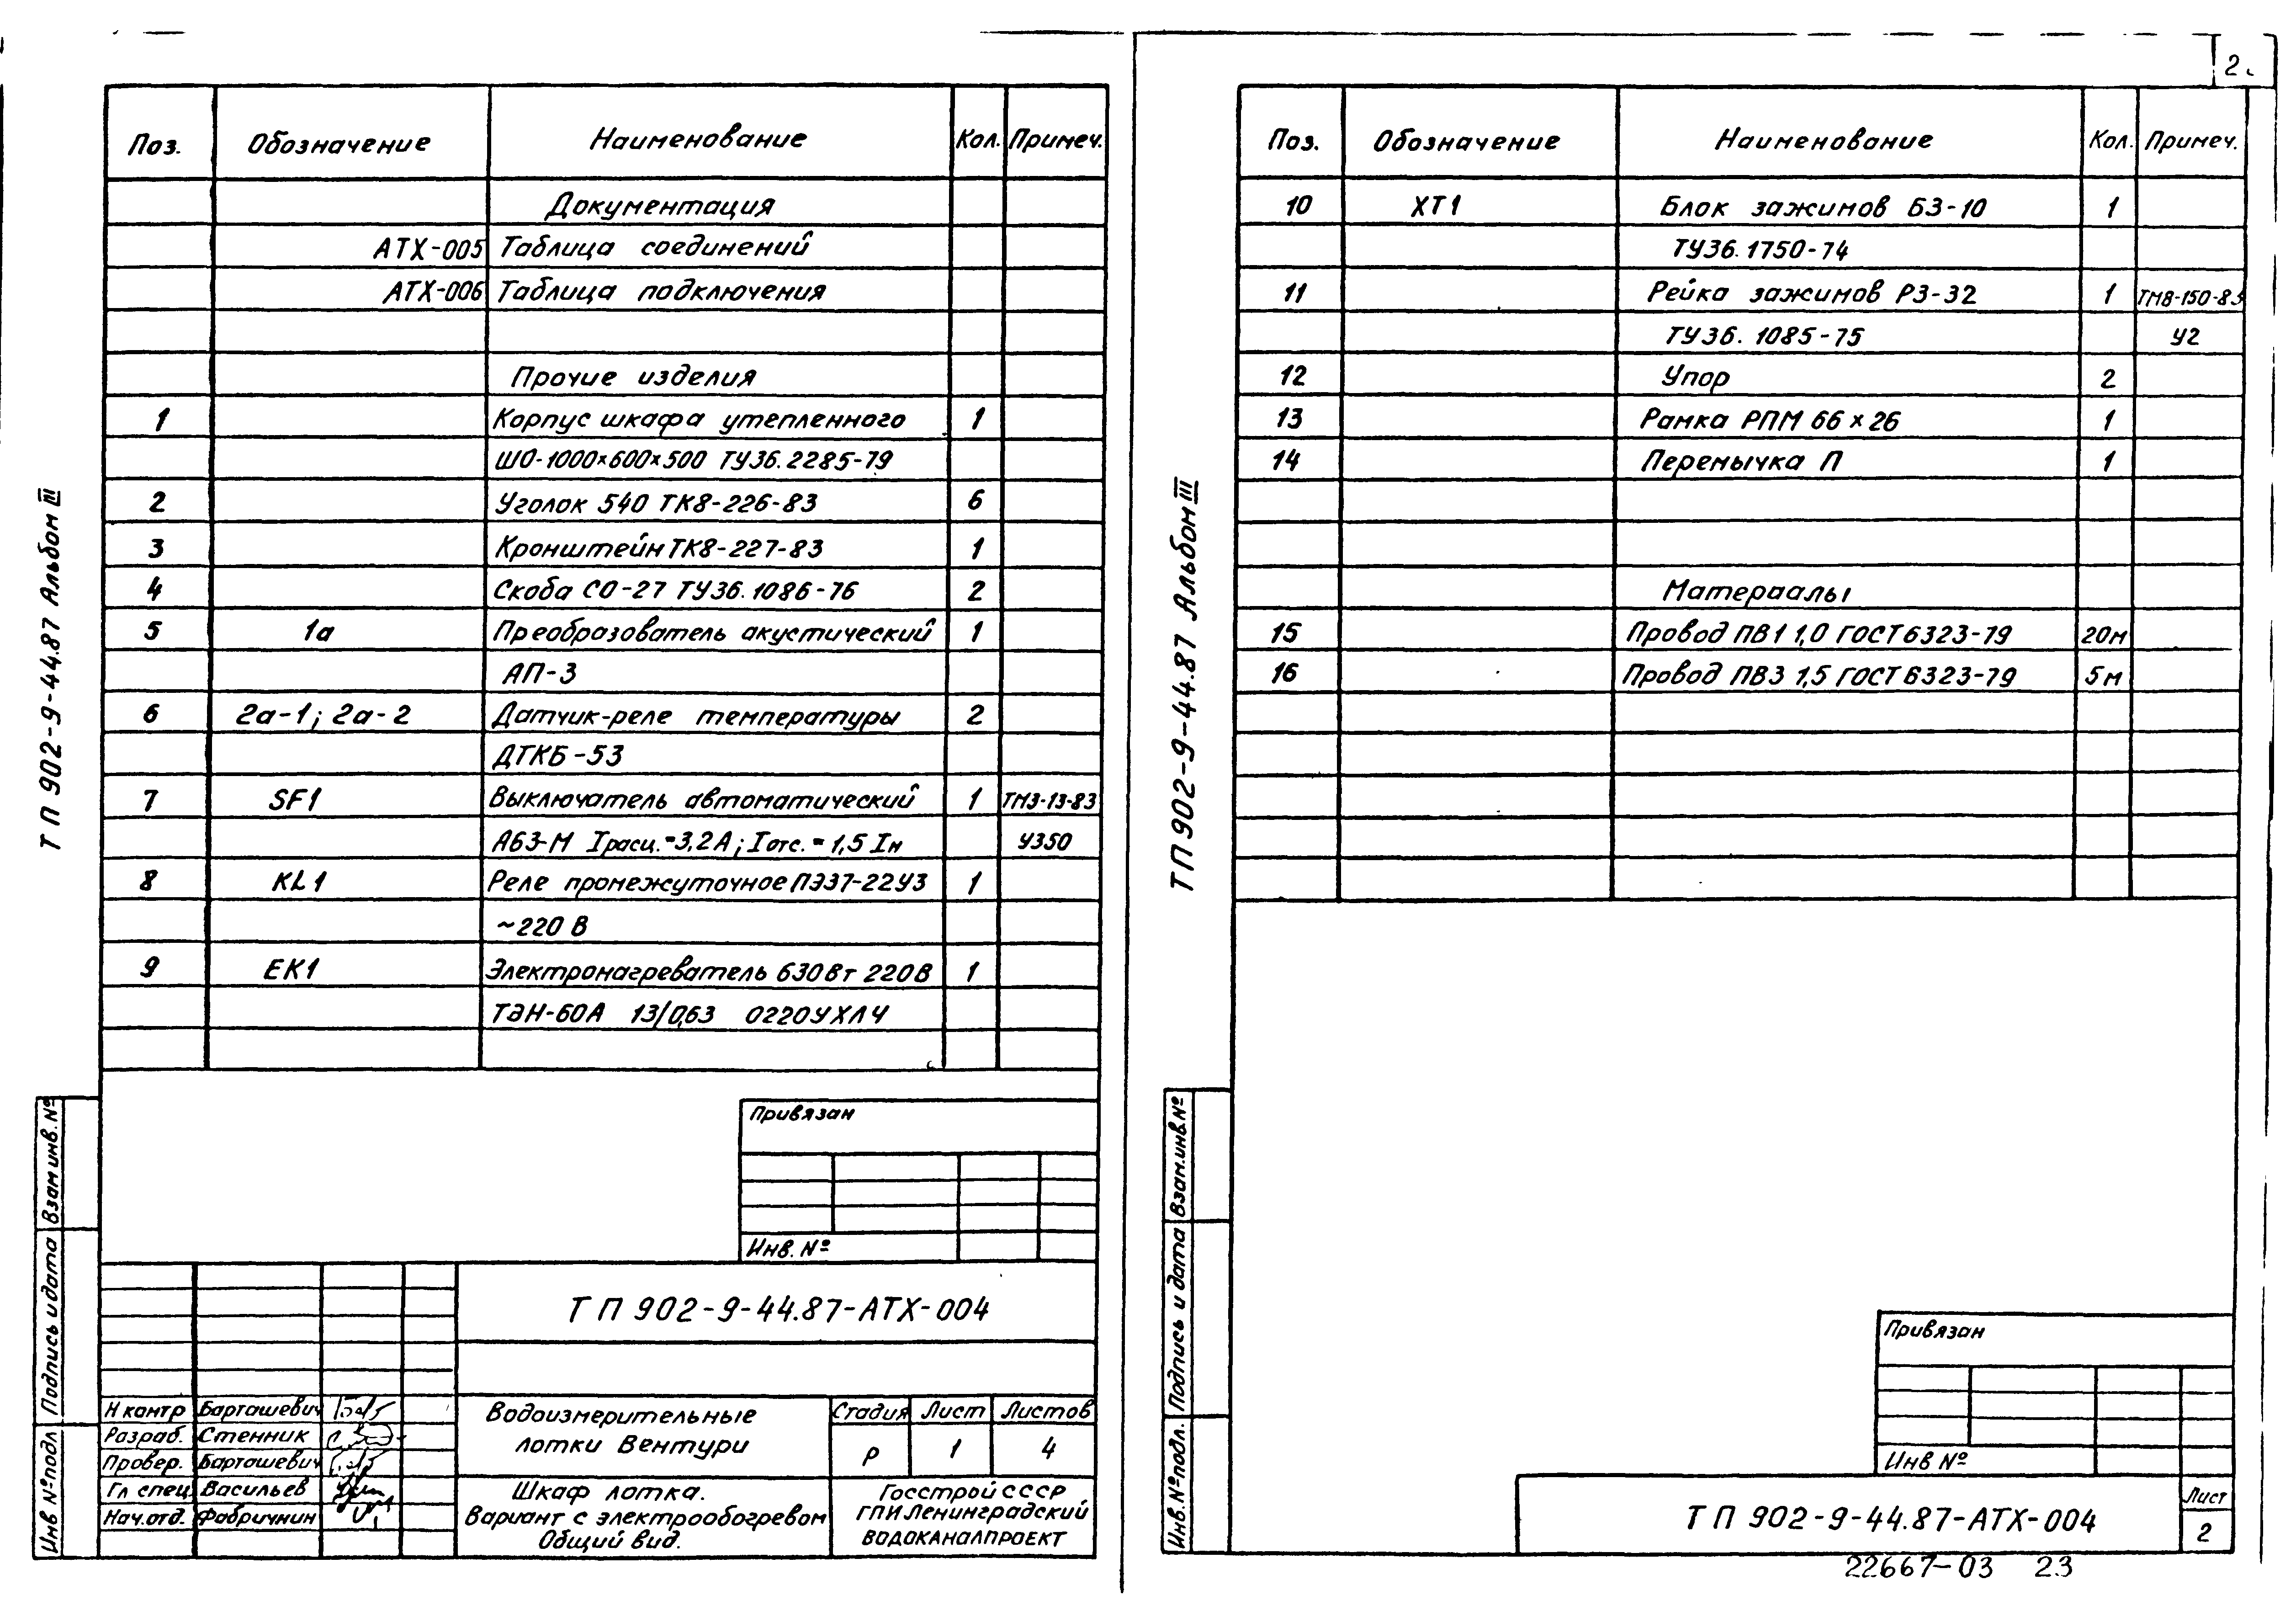 Поз. Обозначение Наименование Кол. Примеч.
Документация
АТХ-005 Таблица соединений
АТХ-006 Таблица подключения
Прочие изделия
1 Корпус шкафа утепленного 1
ШО-1000×600×500 ТУ36.2285-79
2 Уголок 540 ТК8-226-83 6
3 Кронштейн ТК8-227-83 1
4 Скоба СО-27 ТУ36.1086-76 2
5 1а Преобразователь акустический 1
АП-3
6 2а-1; 2а-2 Датчик-реле температуры 2
ДТКБ-53
7 SF1 Выключатель автоматический 1 ТМ3-13-83
А63-М Iрасц.=3,2А; Iотс.=1,5Iн У350
8 KL1 Реле промежуточное ПЭ37-22У3 1
~220 В
9 ЕК1 Электронагреватель 630Вт 220В 1
ТЭН-60А 13/0,63 0220УХЛ4
Привязан
Инв. №
ТП 902-9-44.87-АТХ-004
Н контр Барташевич
Разраб. Стенник
Провер. Барташевич
Гл спец Васильев
Нач.отд. Фабричнин
Водоизмерительные
лотки Вентури
Стадия Лист Листов
Р 1 4
Шкаф лотка.
Вариант с электрообогревом
Общий вид.
Госстрой СССР
ГПИ Ленинградский
ВОДОКАНАЛПРОЕКТ
ТП 902-9-44.87 Альбом III
Взам инв. №
Подпись и дата
Инв № подл
2
Поз. Обозначение Наименование Кол. Примеч.
10 ХТ1 Блок зажимов БЗ-10 1
ТУ36.1750-74
11 Рейка зажимов РЗ-32 1 ТМ8-150-83
ТУ36.1085-75 У2
12 Упор 2
13 Рамка РПМ 66×26 1
14 Перемычка П 1
Матераалы
15 Провод ПВ1 1,0 ГОСТ 6323-79 20м
16 Провод ПВ3 1,5 ГОСТ 6323-79 5м
ТП 902-9-44.87 Альбом III
Взам.инв.№
Подпись и дата
Инв.№подл.
Привязан
Инв №
ТП 902-9-44.87-АТХ-004
Лист
2
22667-03 23